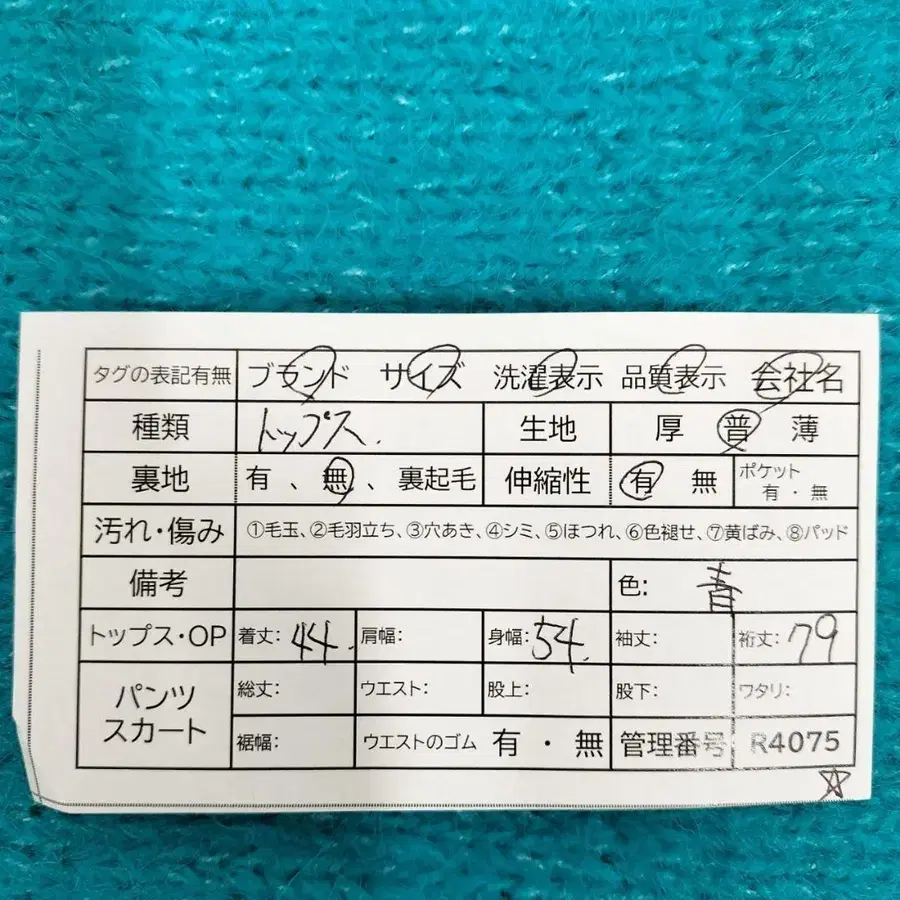 タグの表記有無 ブランド サイズ 洗濯表示 品質表示 会社名
種類 トップス. 生地 厚 普 薄
裏地 有 、無 、裏起毛 伸縮性 有 無 ポケット 有・無
汚れ・傷み ①毛玉、②毛羽立ち、③穴あき、④シミ、⑤ほつれ、⑥色褪せ、⑦黄ばみ、⑧パッド
備考 色: 青
トップス・OP 着丈: 44. 肩幅: 身幅: 54. 袖丈: 裄丈: 79
パンツ スカート 総丈: ウエスト: 股上: 股下: ワタリ:
裾幅: ウエストのゴム 有・無 管理番号 R4075